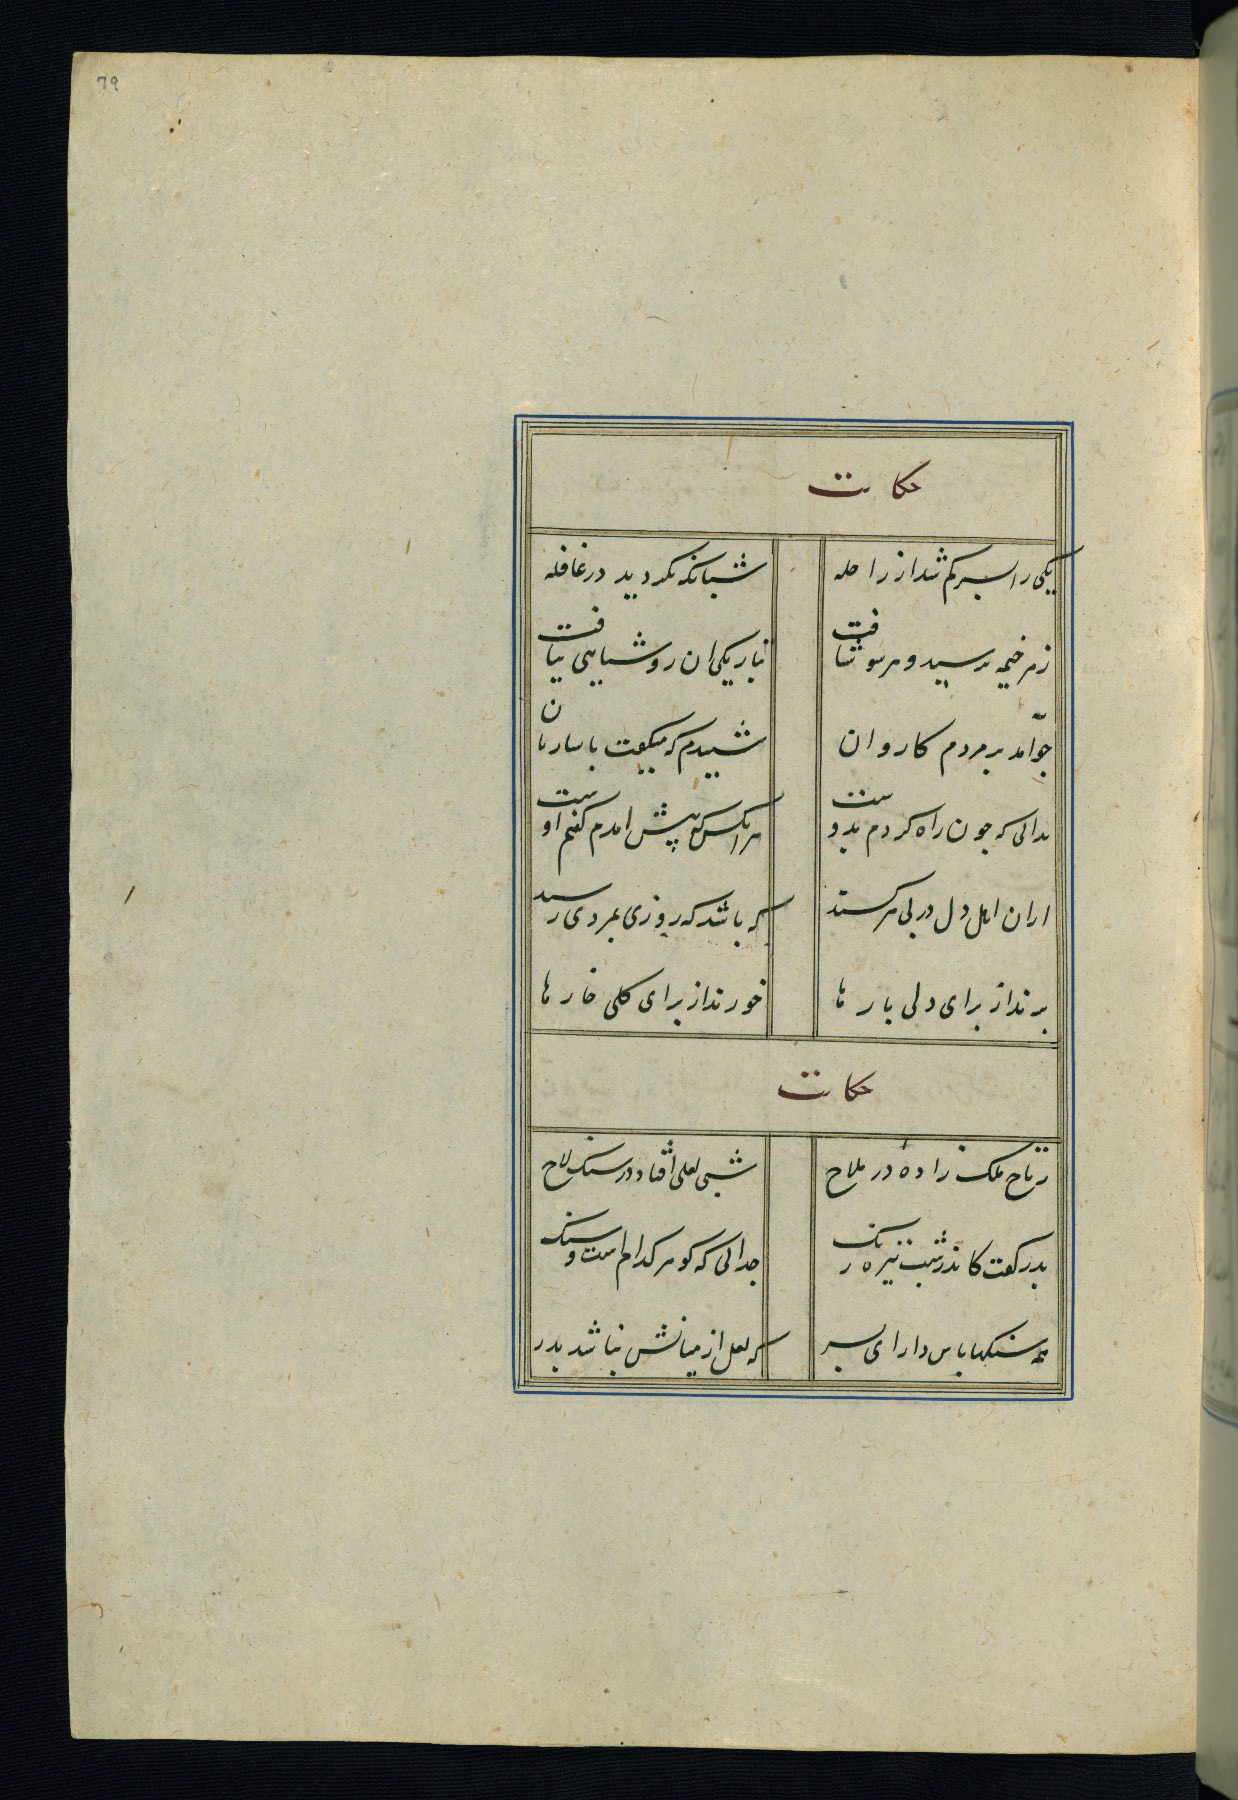 79
حکایت
یکی را پسر گم شد از راحله شبانگه بگردید در غافله
ز هر خیمه پرسید و هر سو شتافت بتاریکی آن روشنایی بیافت
چو آمد بر مردم کاروان شنیدم که میگفت با ساربان
ندانی که چون راه بردم بدوست هر آنکس که پیش آمدم گفتم اوست
از آن اهل دل در پی هر کسند که باشد که روزی بمردی رسند
برند از برای دلی بارها خورند از برای گلی خارها
حکایت
ز تاج ملک زاده در ملاخ شبی لعلی افتاد در سنگ لاخ
پدر گفت کاندر شب تیره رنگ چه دانی که گوهر کدام است و سنگ
همه سنگها پاس دار ای پسر که لعل از میانش نباشد بدر